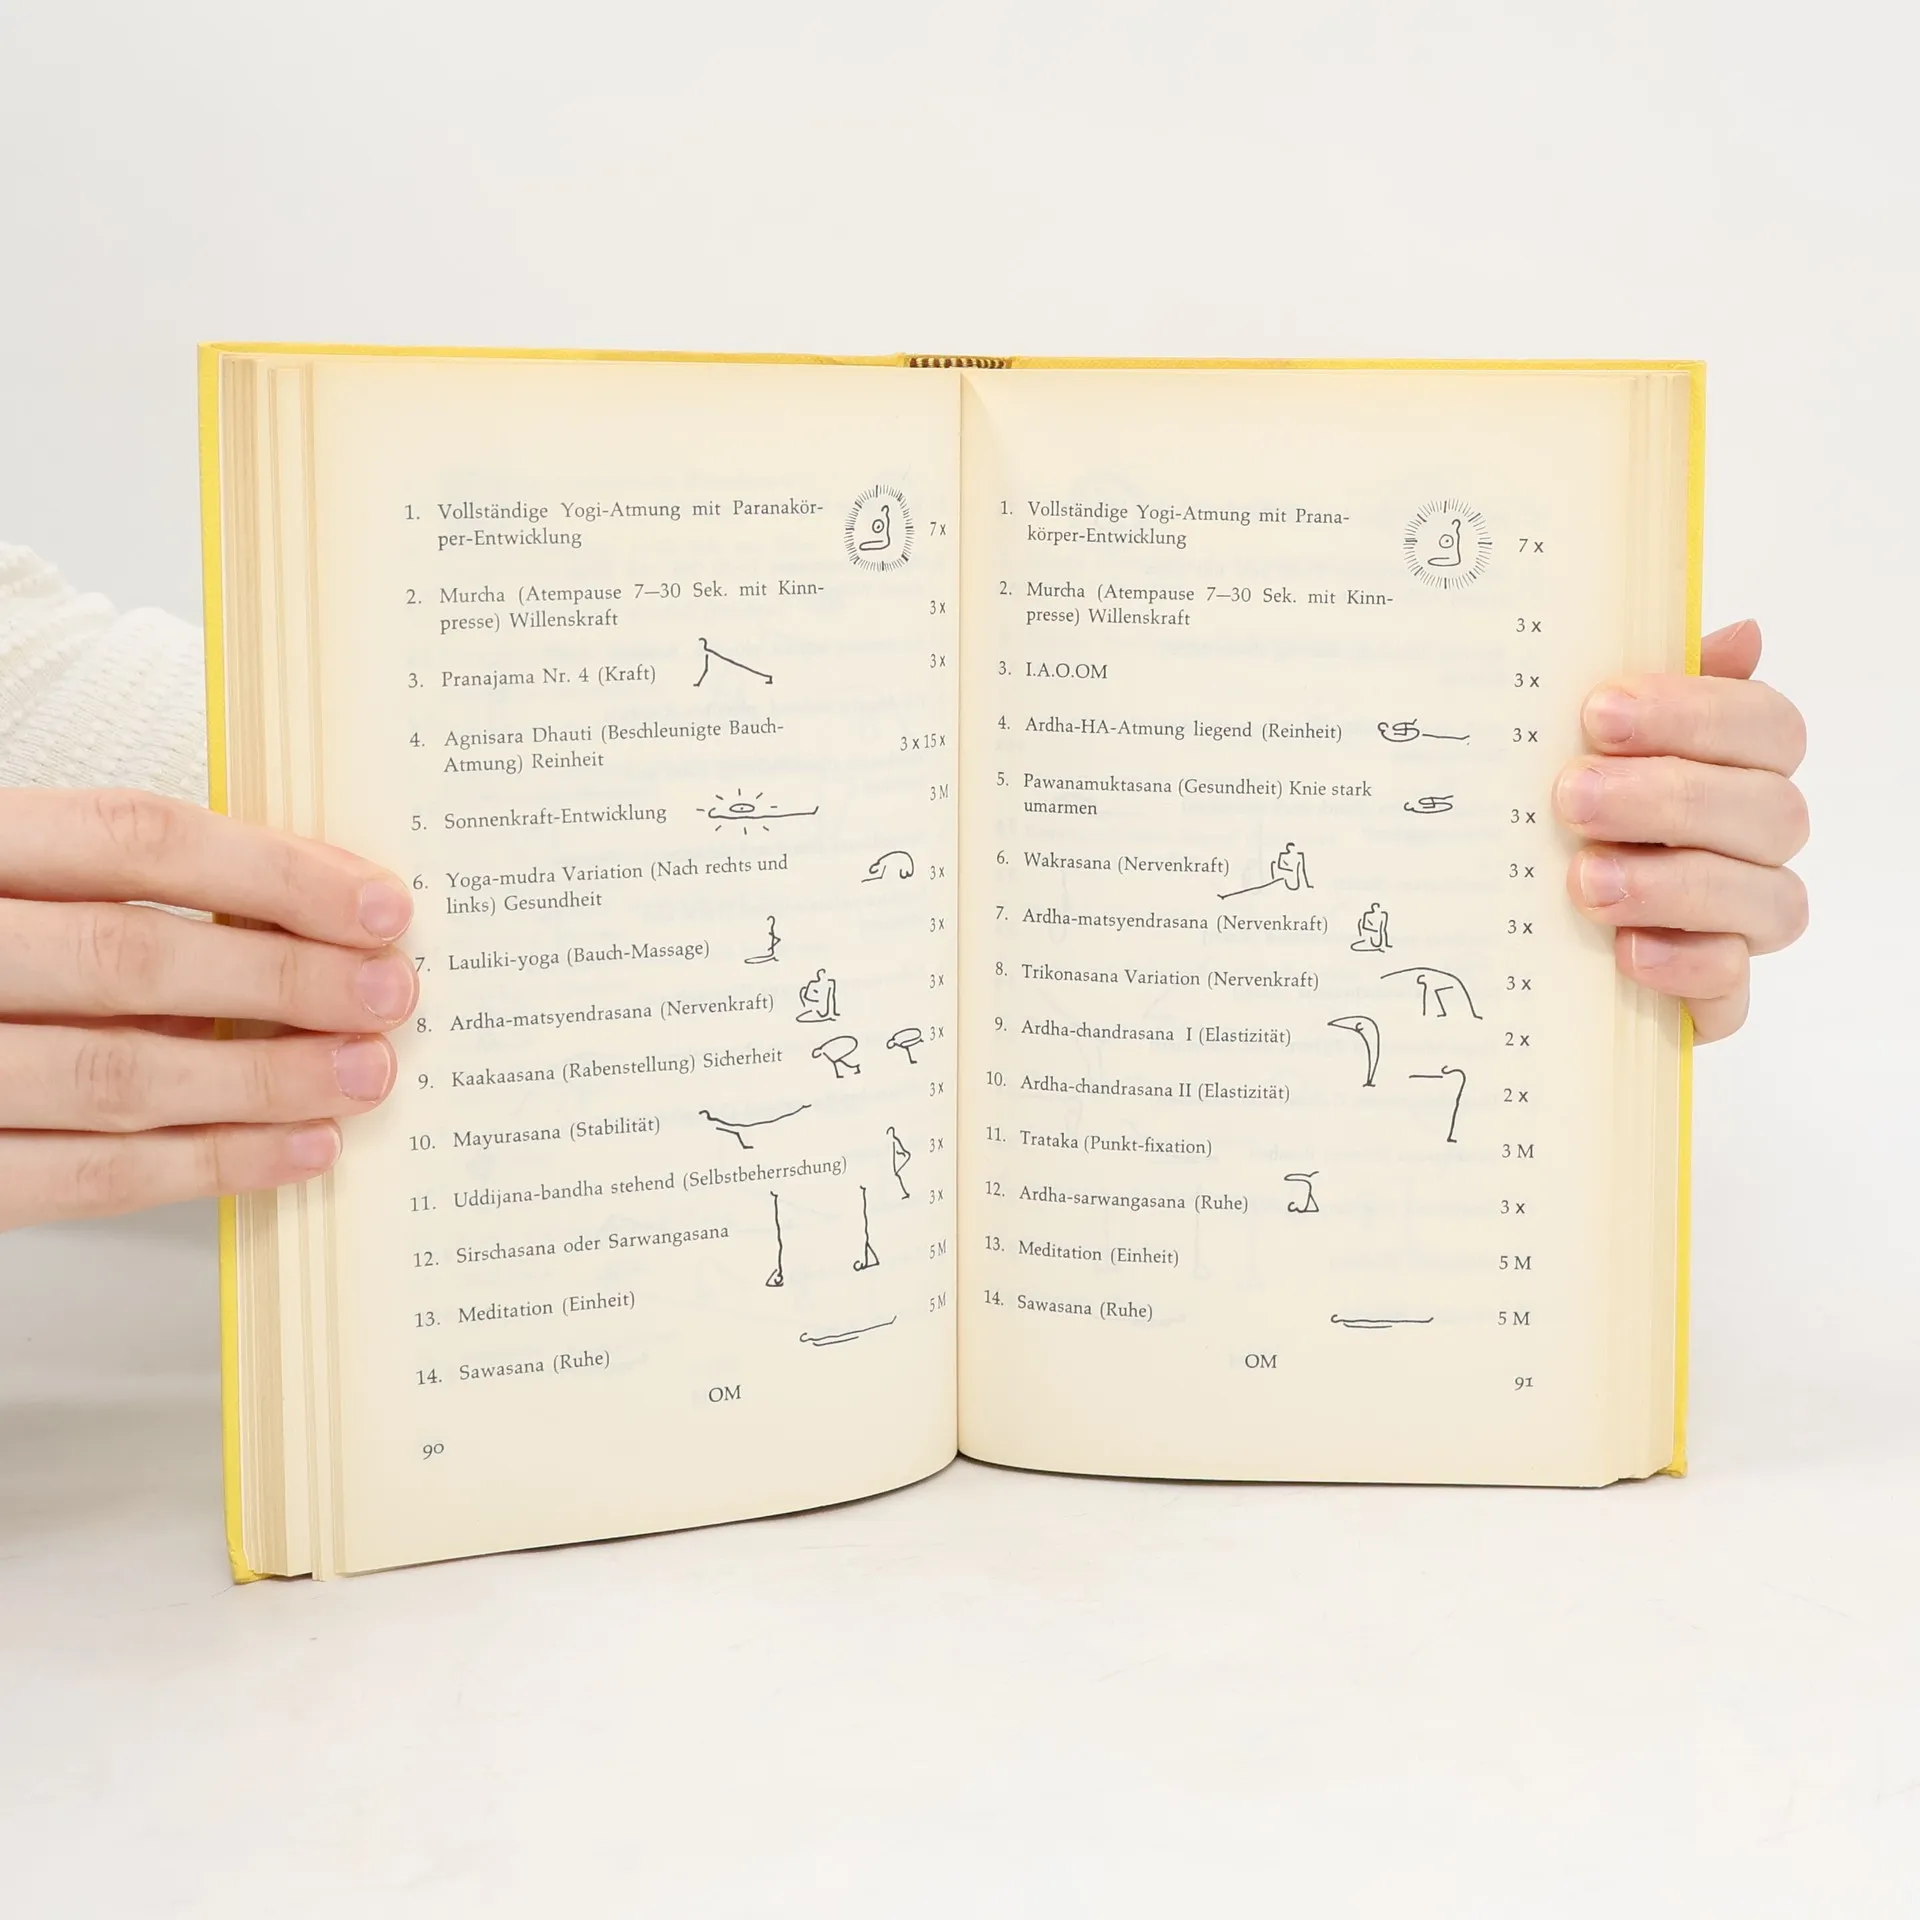 1. Vollständige Yogi-Atmung mit Paranakör-
per-Entwicklung 7 x
2. Murcha (Atempause 7—30 Sek. mit Kinn-
presse) Willenskraft 3 x
3. Pranajama Nr. 4 (Kraft) 3 x
4. Agnisara Dhauti (Beschleunigte Bauch-
Atmung) Reinheit 3 x 15 x
5. Sonnenkraft-Entwicklung 3 M
6. Yoga-mudra Variation (Nach rechts und
links) Gesundheit 3 x
7. Lauliki-yoga (Bauch-Massage) 3 x
8. Ardha-matsyendrasana (Nervenkraft) 3 x
9. Kaakaasana (Rabenstellung) Sicherheit 3 x
10. Mayurasana (Stabilität) 3 x
11. Uddijana-bandha stehend (Selbstbeherrschung) 3 x
12. Sirschasana oder Sarwangasana 3 x
13. Meditation (Einheit) 5 M
14. Sawasana (Ruhe) 5 M
OM
90
1. Vollständige Yogi-Atmung mit Prana-
körper-Entwicklung 7 x
2. Murcha (Atempause 7—30 Sek. mit Kinn-
presse) Willenskraft 3 x
3. I.A.O.OM 3 x
4. Ardha-HA-Atmung liegend (Reinheit) 3 x
5. Pawanamuktasana (Gesundheit) Knie stark
umarmen 3 x
6. Wakrasana (Nervenkraft) 3 x
7. Ardha-matsyendrasana (Nervenkraft) 3 x
8. Trikonasana Variation (Nervenkraft) 3 x
9. Ardha-chandrasana I (Elastizität) 2 x
10. Ardha-chandrasana II (Elastizität) 2 x
11. Trataka (Punkt-fixation) 3 M
12. Ardha-sarwangasana (Ruhe) 3 x
13. Meditation (Einheit) 5 M
14. Sawasana (Ruhe) 5 M
OM
91